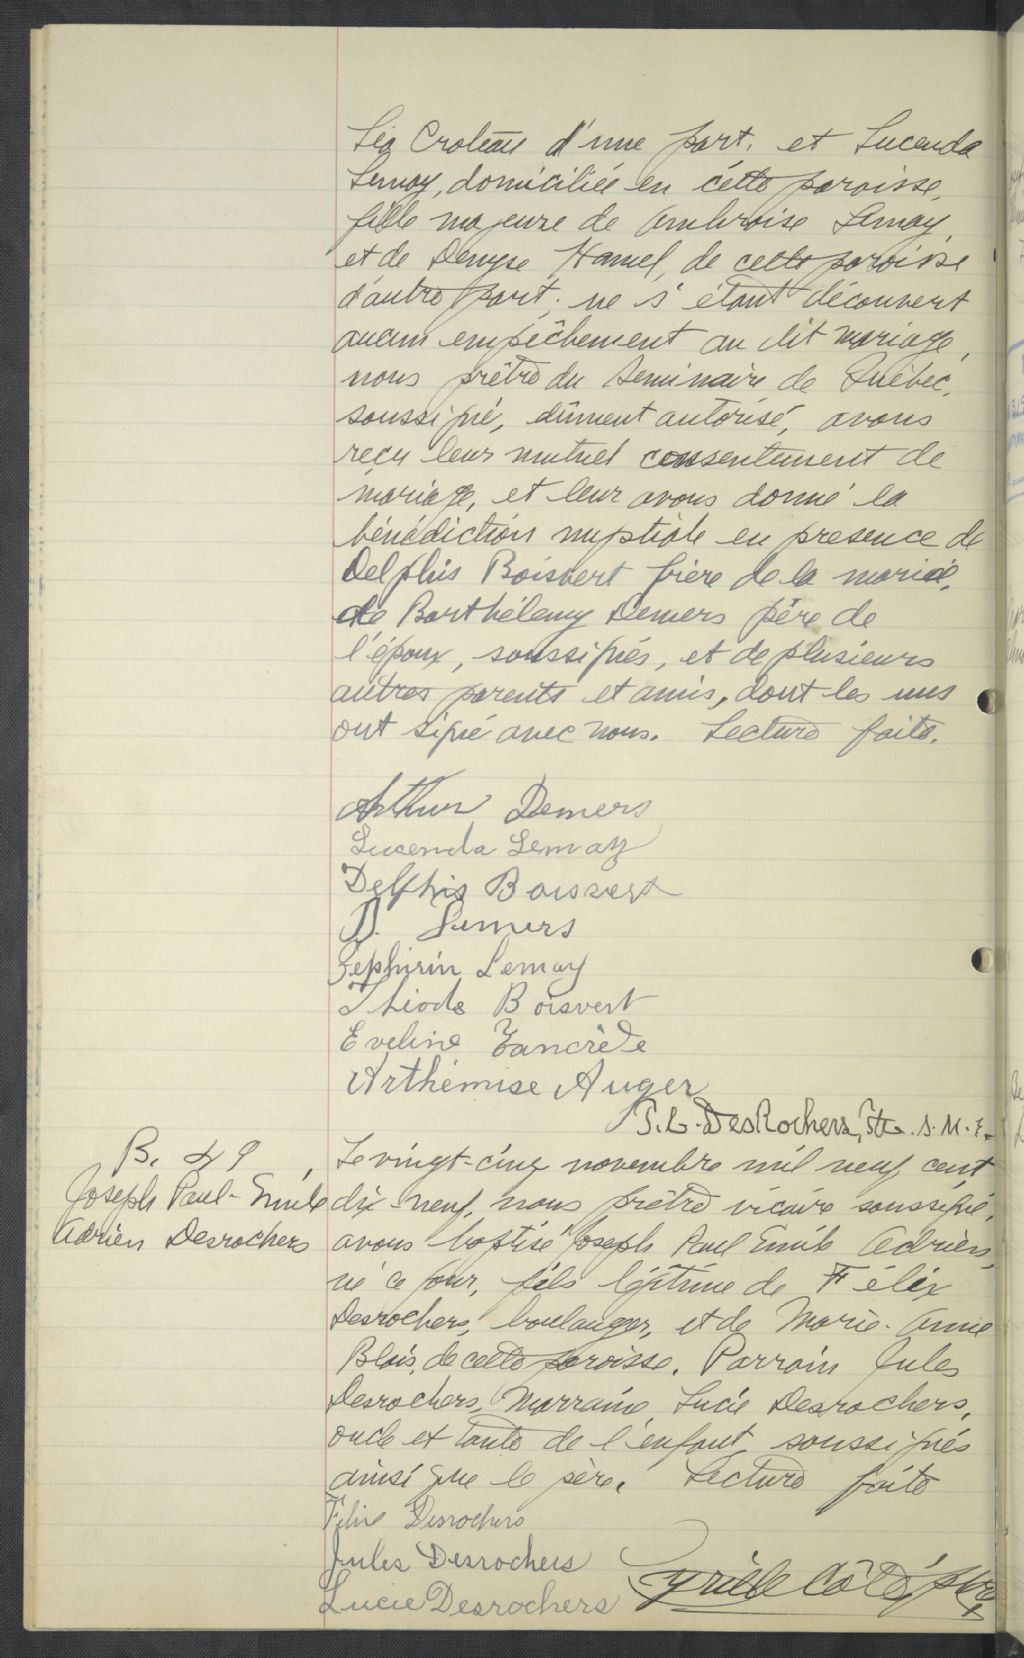 Léa Croteau d'une part. et Lucenda
Lemay, domiciliée en cette paroisse,
fille majeure de Ambroise Lemay,
et de Denyse Hamel, de cette paroisse
d'autre part; ne s'étant découvert
aucun empêchement au dit mariage,
nous prêtre du Seminaire de Québec,
soussigné, dûment autorisé, avons
reçu leur mutuel consentement de
mariage, et leur avons donné la
bénédiction nuptiale en presence de
Delphis Boisvert frère de la mariée,
de Barthélemy Demers père de
l'époux, soussignés, et de plusieurs
autres parents et amis, dont les uns
ont signé avec nous. Lecture faite.
Arthur Demers
Lucenda Lemay
Delphis Boisvert
B. Demers
Zephirin Lemay
Boisvert
Eveline Tancrède
Arthémise Auger
J. L. DesRochers, Ptre. S. M. E.
B. 49
Joseph Paul-Emile
Adrien Desrochers
Le vingt-cinq novembre mil neuf cent
dix-neuf, nous prêtre vicaire soussigné,
avons baptisé Joseph Paul Emile Adrien,
né ce jour, fils légitime de Félix
Desrochers, boulanger, et de Marie-Anne
Blais, de cette paroisse. Parrain Jules
Desrochers, Marraine Lucie Desrochers,
oncle et tante de l'enfant, soussignés
ainsi que le père. Lecture faite
Félix Desrochers
Jules Desrochers
Lucie Desrochers
Cyrille Côté, ptre